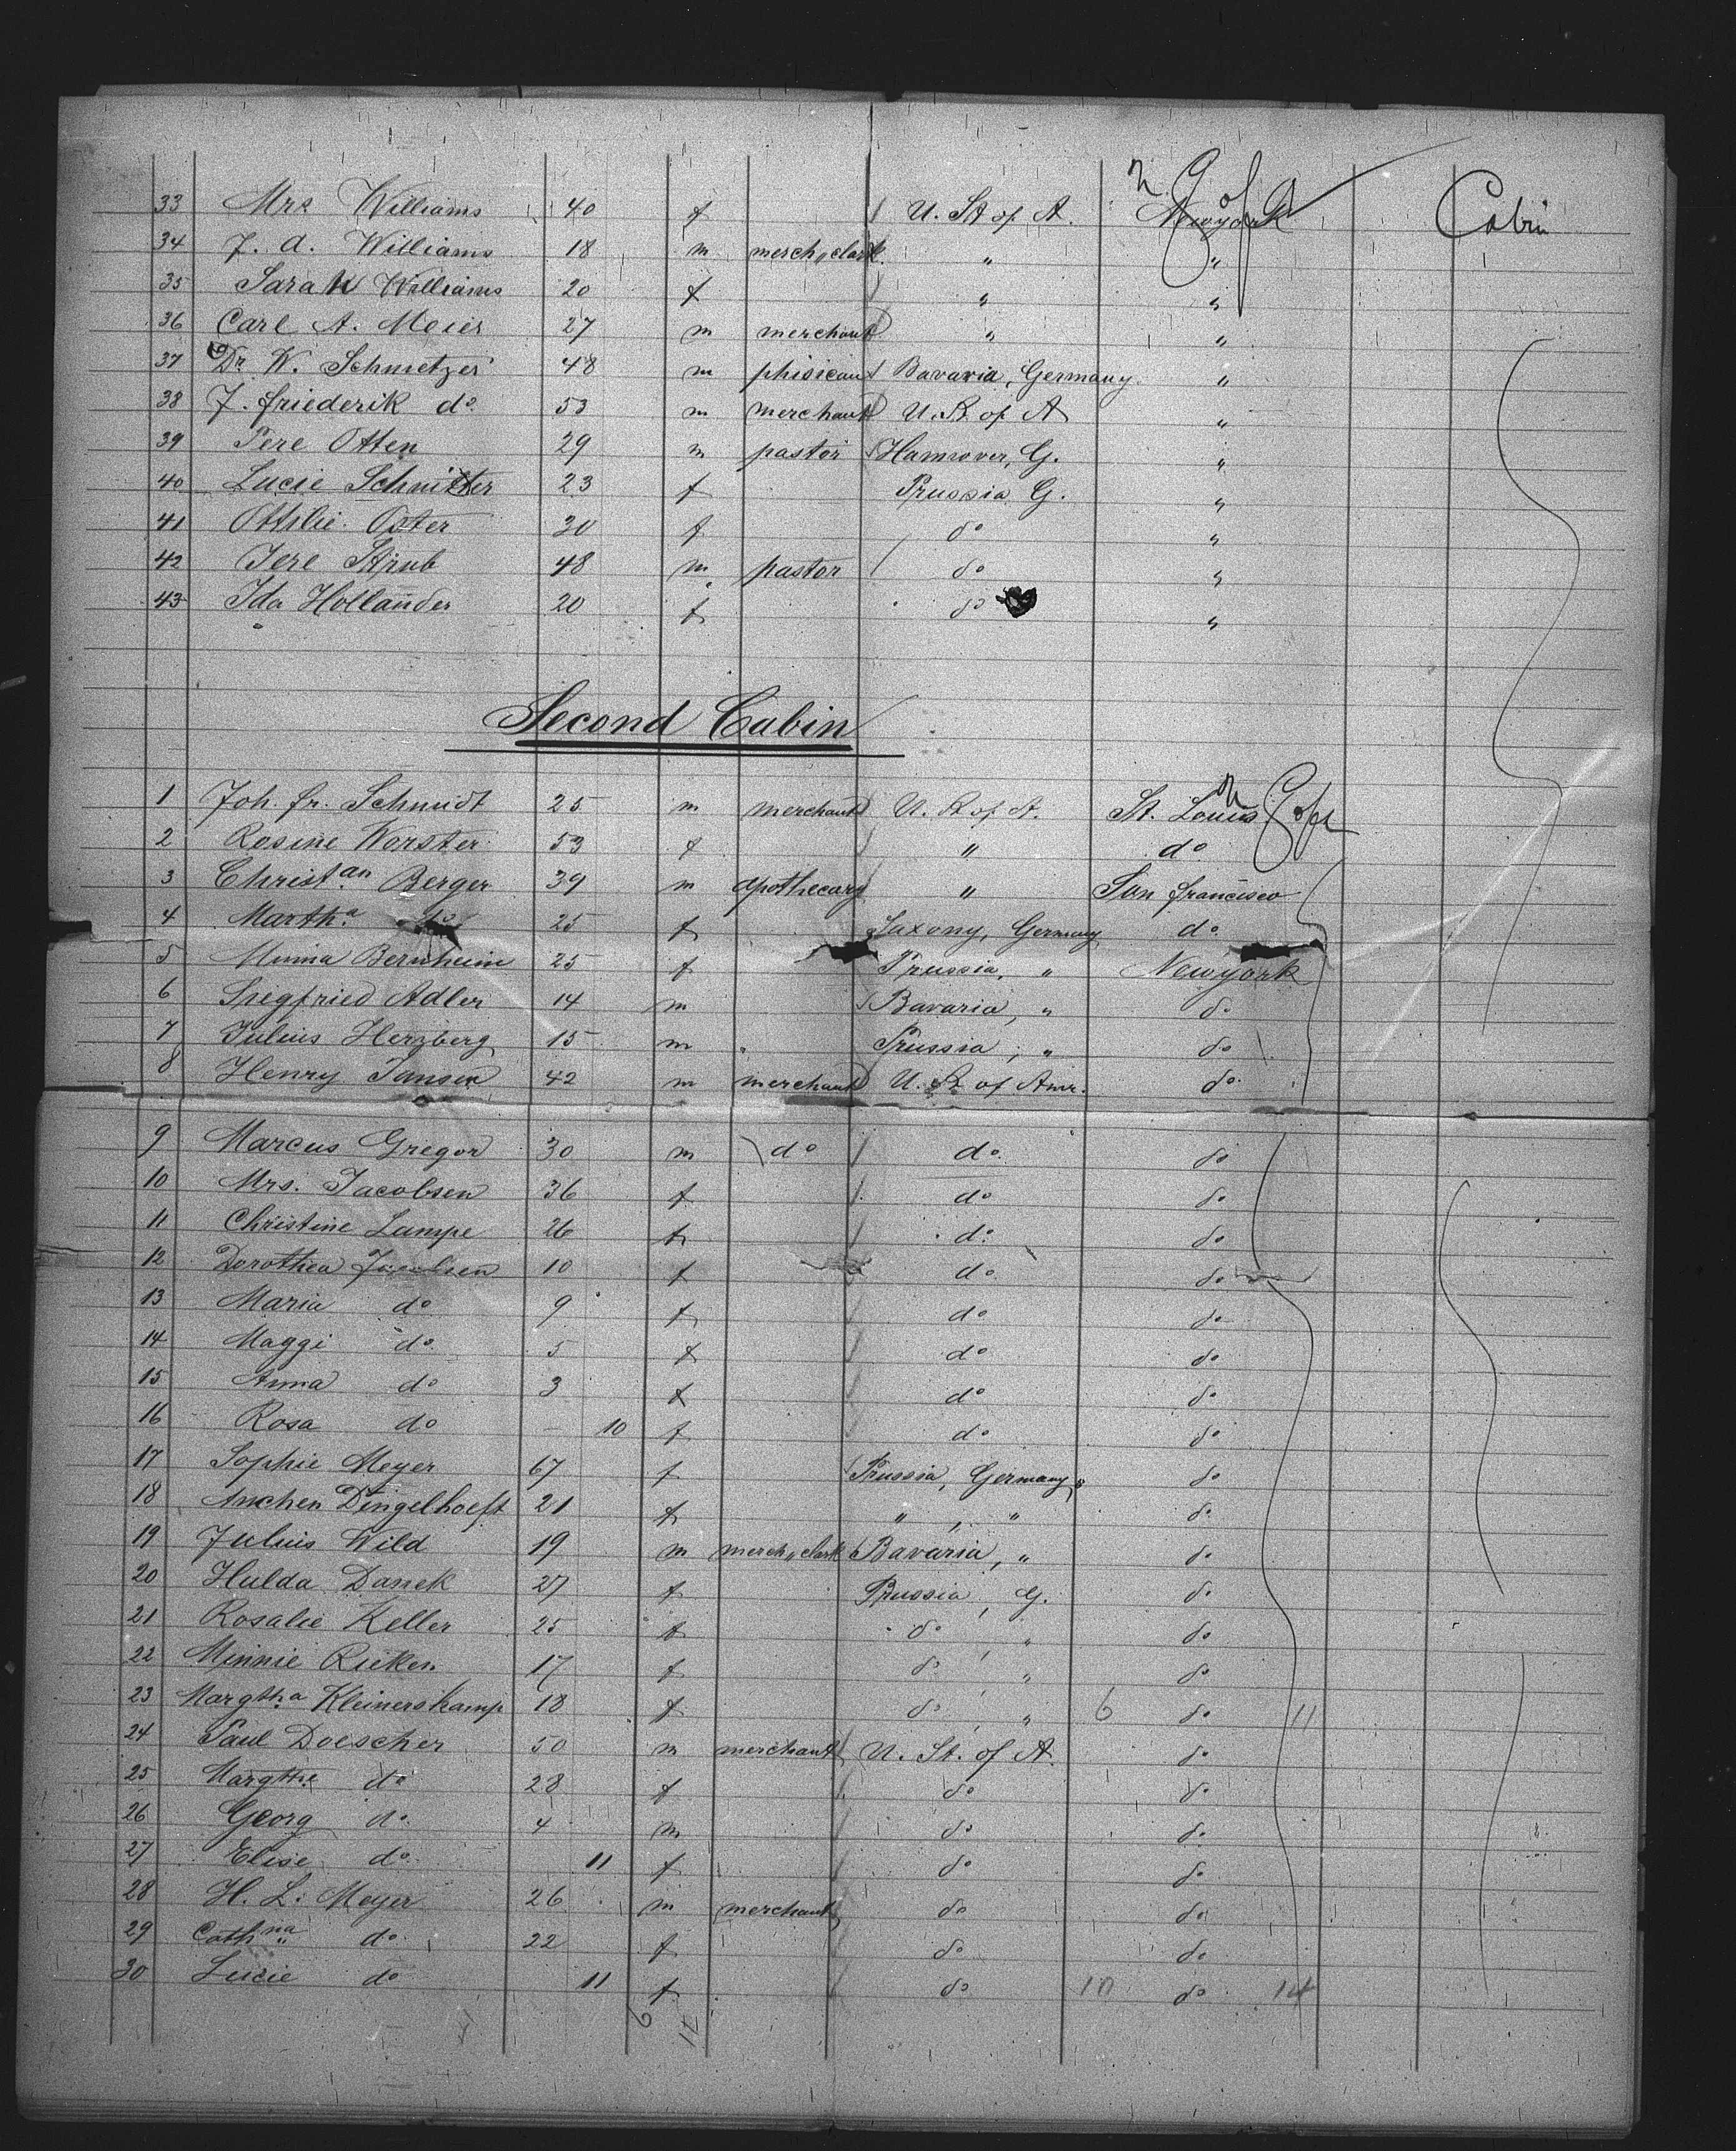 33 Mrs Williams 40 f U. St of A. Newyork Cabin
34 J. A. Williams 18 m merch„clark „ „
35 Sarah Williams 20 f „ „
36 Carl A. Meier 27 m merchant „ „
37 Dr W. Schmetzer 48 m phisicant Bavaria, Germany „
38 J. friederik do 53 m merchant U. St of A „
39 Pere Otten 29 m pastor Hannover, G. „
40 Lucie Schnitter 23 f Prussia G. „
41 Ottilie Oster 30 f do „
42 Pere Strub 48 m pastor do „
43 Ida Hollander 20 f do „
Second Cabin
1 Joh. fr. Schmidt 25 m merchant U. St of A. St. Louis
2 Rosine Worster 53 f „ do
3 Christan Berger 39 m apothecary „ San francisco
4 Martha do 25 f Saxony, Germany do
5 Minna Bernheim 25 f Prussia, „ Newyork
6 Siegfried Adler 14 m Bavaria, „ do
7 Julius Herzberg 15 m Prussia, „ do
8 Henry Jansen 42 m merchant U. St of Amr. do
9 Marcus Gregor 30 m do do do
10 Mrs. Jacobsen 36 f do do
11 Christine Lampe 26 f do do
12 Dorothea Jacobsen 10 f do do
13 Maria do 9 f do do
14 Maggi do 5 f do do
15 Anna do 3 f do do
16 Rosa do — 10 f do do
17 Sophie Meyer 67 f Prussia, Germany do
18 Anchen Dingelhoeft 21 f „ , „ do
19 Julius Wild 19 m merch„clark Bavaria, „ do
20 Hulda Danek 27 f Prussia, G. do
21 Rosalie Keller 25 f do , „ do
22 Minnie Rieken 17 f do , „ do
23 Margtha Kleinerskamp 18 f do , „ 6 do 11
24 Paul Doescher 50 m merchant U. St. of A do
25 Margthe do 28 f do do
26 Georg do 4 m do do
27 Elise do 11 f do do
28 H. L. Meyer 26 m merchant do do
29 Cathna do 22 f do do
30 Lucie do 11 f do 10 do 14